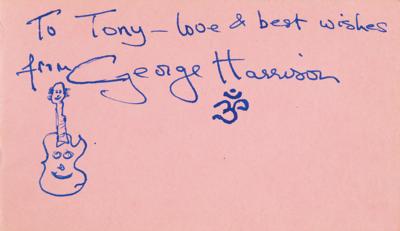 To Tony – love & best wishes
from George Harrison
ॐ